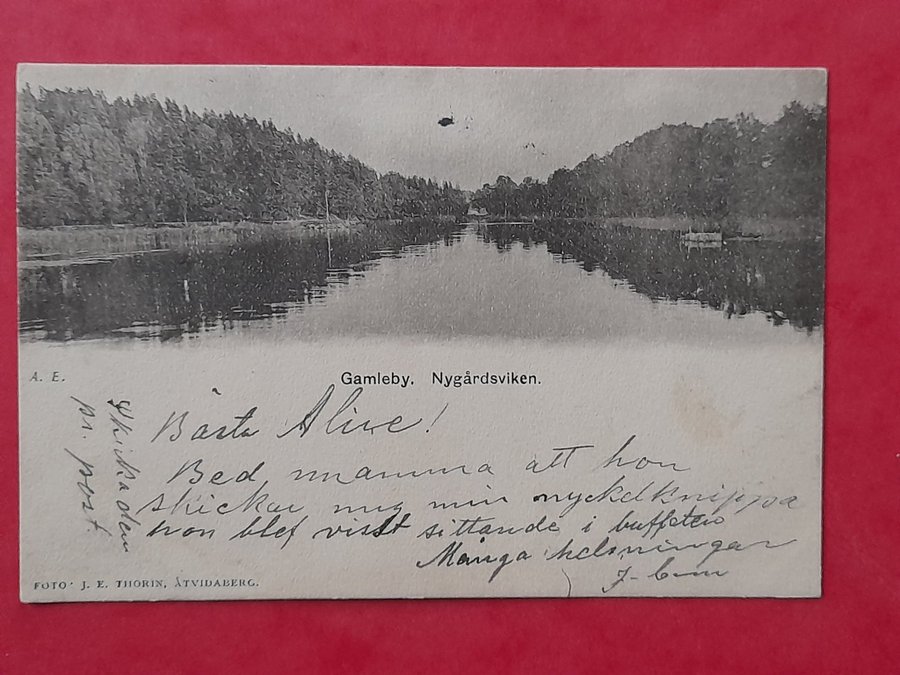 A. E.
Gamleby. Nygårdsviken.
Bästa Alice!
Bed mamma att hon
skickar mig min nyckelknippa
hon blef visst sittande i buffeten
Många helsningar
Skicka den
pr. post
FOTO: J. E. THORIN, ÅTVIDABERG.